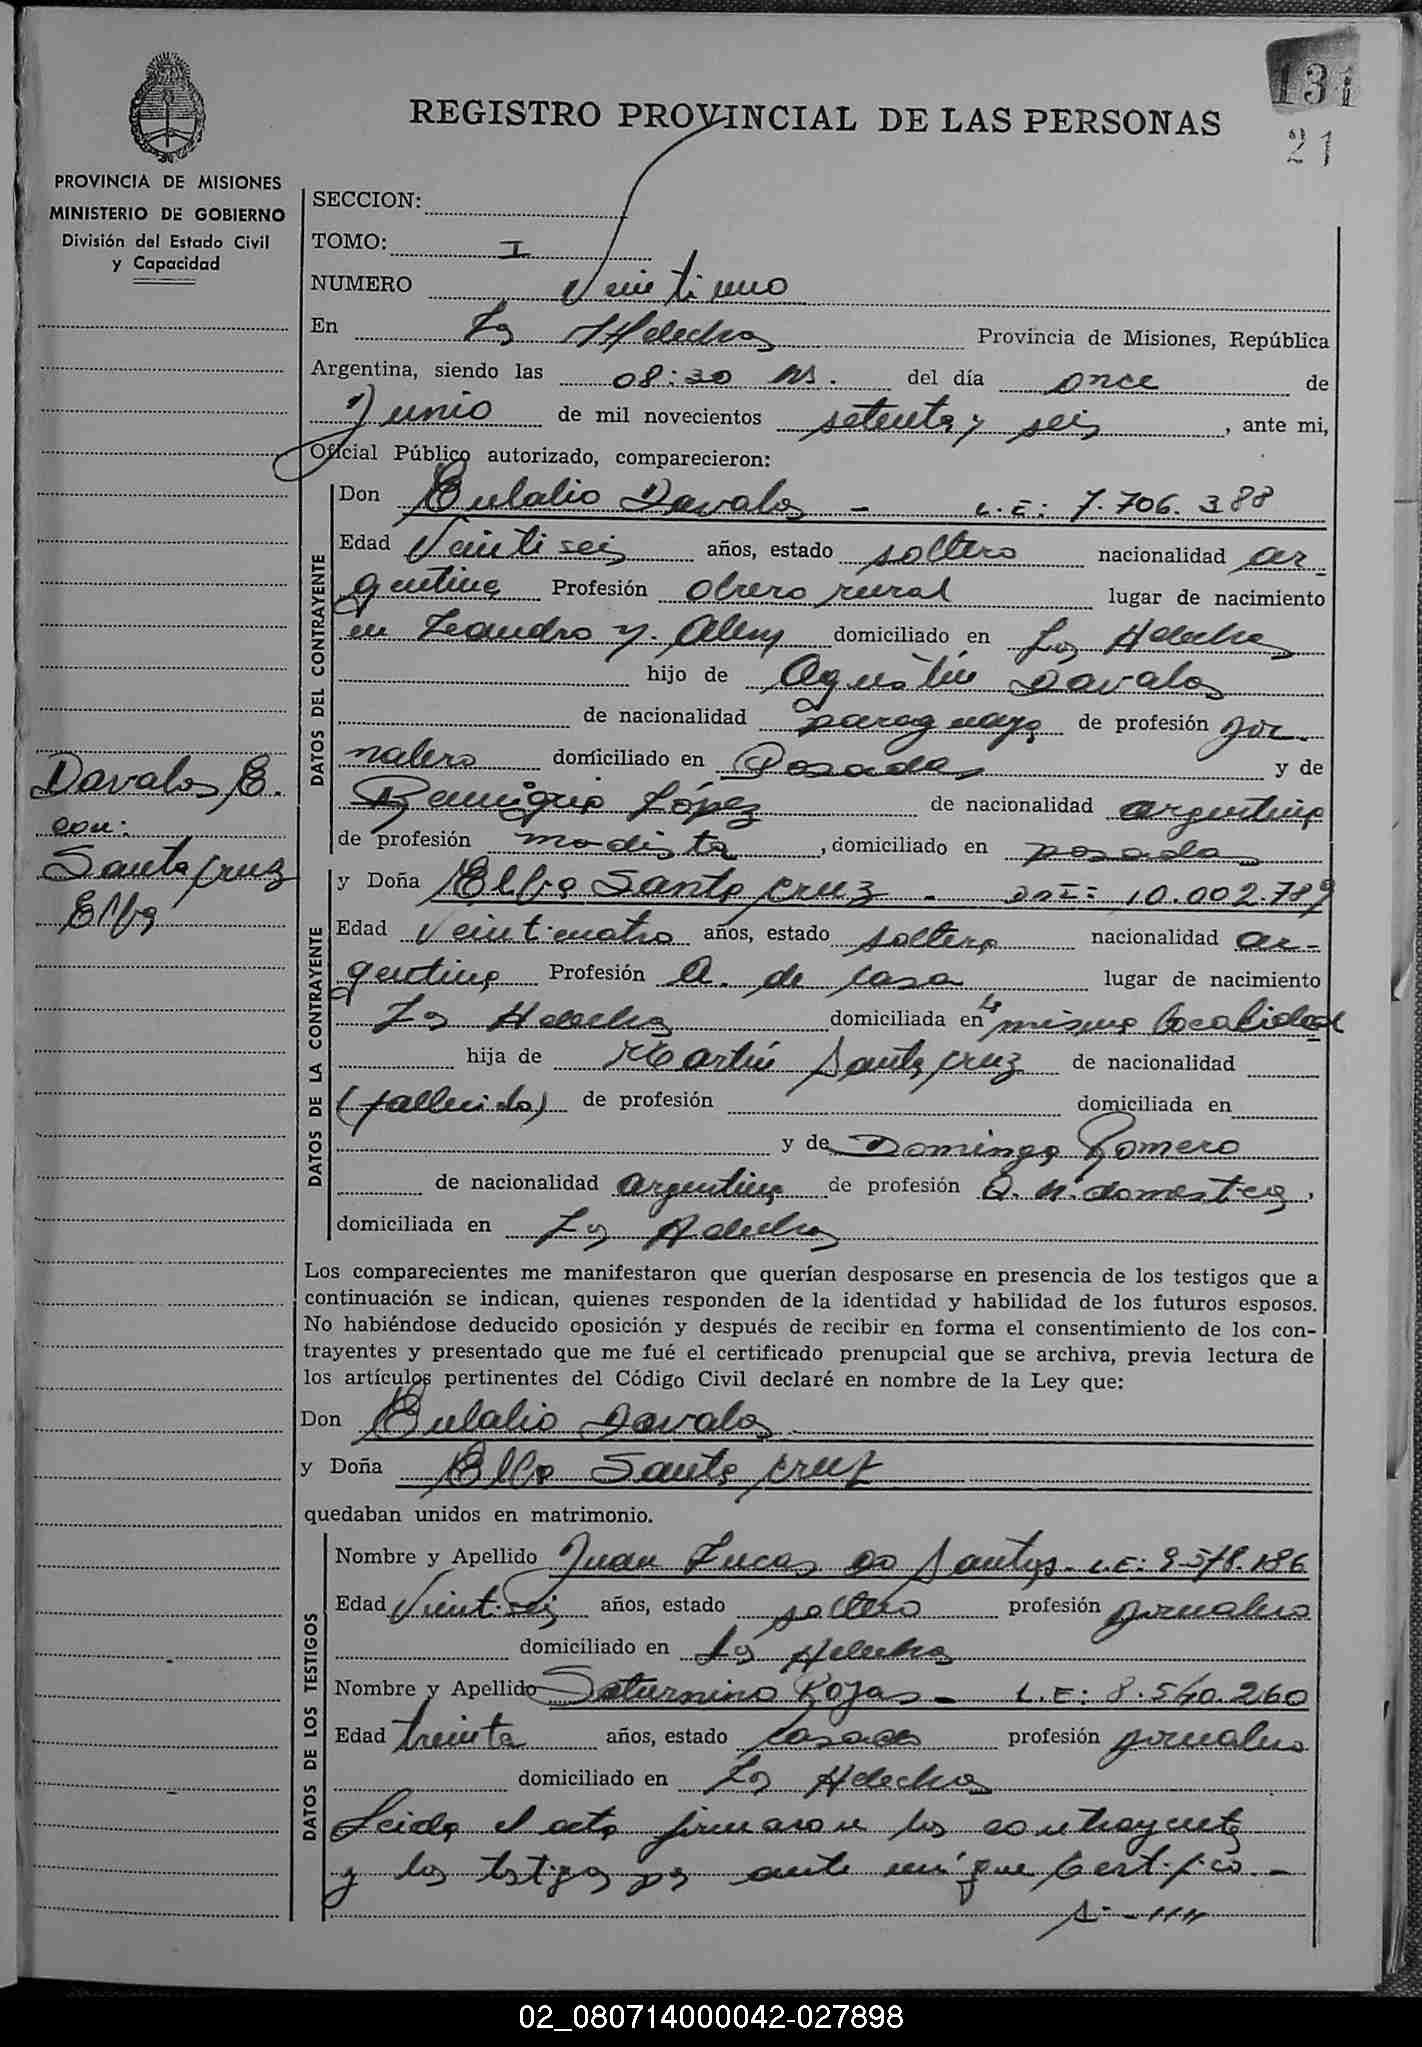 131
21
REGISTRO PROVINCIAL DE LAS PERSONAS
PROVINCIA DE MISIONES
MINISTERIO DE GOBIERNO
División del Estado Civil
y Capacidad
Davalos, E.
con:
Santa Cruz
Elba
SECCION:
TOMO: I
NUMERO Veintiuno
En Los Helechos Provincia de Misiones, República
Argentina, siendo las 08:30 hs. del día once de
Junio de mil novecientos setenta y seis, ante mi,
Oficial Público autorizado, comparecieron:
DATOS DEL CONTRAYENTE
Don Eulalio Davalos - L.E: 7.706.388
Edad Veintiseis años, estado soltero nacionalidad ar-
gentina Profesión obrero rural lugar de nacimiento
en Leandro N. Alem domiciliado en Los Helechos
hijo de Agustín Davalos
de nacionalidad paraguaya de profesión jor-
nalero domiciliado en Posadas y de
Remigia López de nacionalidad argentina
de profesión modista, domiciliado en posadas
DATOS DE LA CONTRAYENTE
y Doña Elba Santa Cruz - DNI: 10.002.789
Edad Veinticuatro años, estado soltera nacionalidad ar-
gentina Profesión A. de casa lugar de nacimiento
Los Helechos domiciliada en la misma localidad
hija de Martín Santa Cruz de nacionalidad
(fallecido) de profesión domiciliada en
y de Dominga Romero
de nacionalidad argentina de profesión domestica,
domiciliada en Los Helechos
Los comparecientes me manifestaron que querían desposarse en presencia de los testigos que a
continuación se indican, quienes responden de la identidad y habilidad de los futuros esposos.
No habiéndose deducido oposición y después de recibir en forma el consentimiento de los con-
trayentes y presentado que me fué el certificado prenupcial que se archiva, previa lectura de
los artículos pertinentes del Código Civil declaré en nombre de la Ley que:
Don Eulalio Davalos
y Doña Elba Santa Cruz
quedaban unidos en matrimonio.
DATOS DE LOS TESTIGOS
Nombre y Apellido Juan Lucas Do Santos - L.E: 8.578.186
Edad Veintiseis años, estado soltero profesión jornalero
domiciliado en Los Helechos
Nombre y Apellido Saturnino Rojas - L.E: 8.540.260
Edad treinta años, estado casado profesión jornalero
domiciliado en Los Helechos
Leida el acta firmaron los contrayentes
y los testigos por ante mí que Certifico. -
02_080714000042-027898